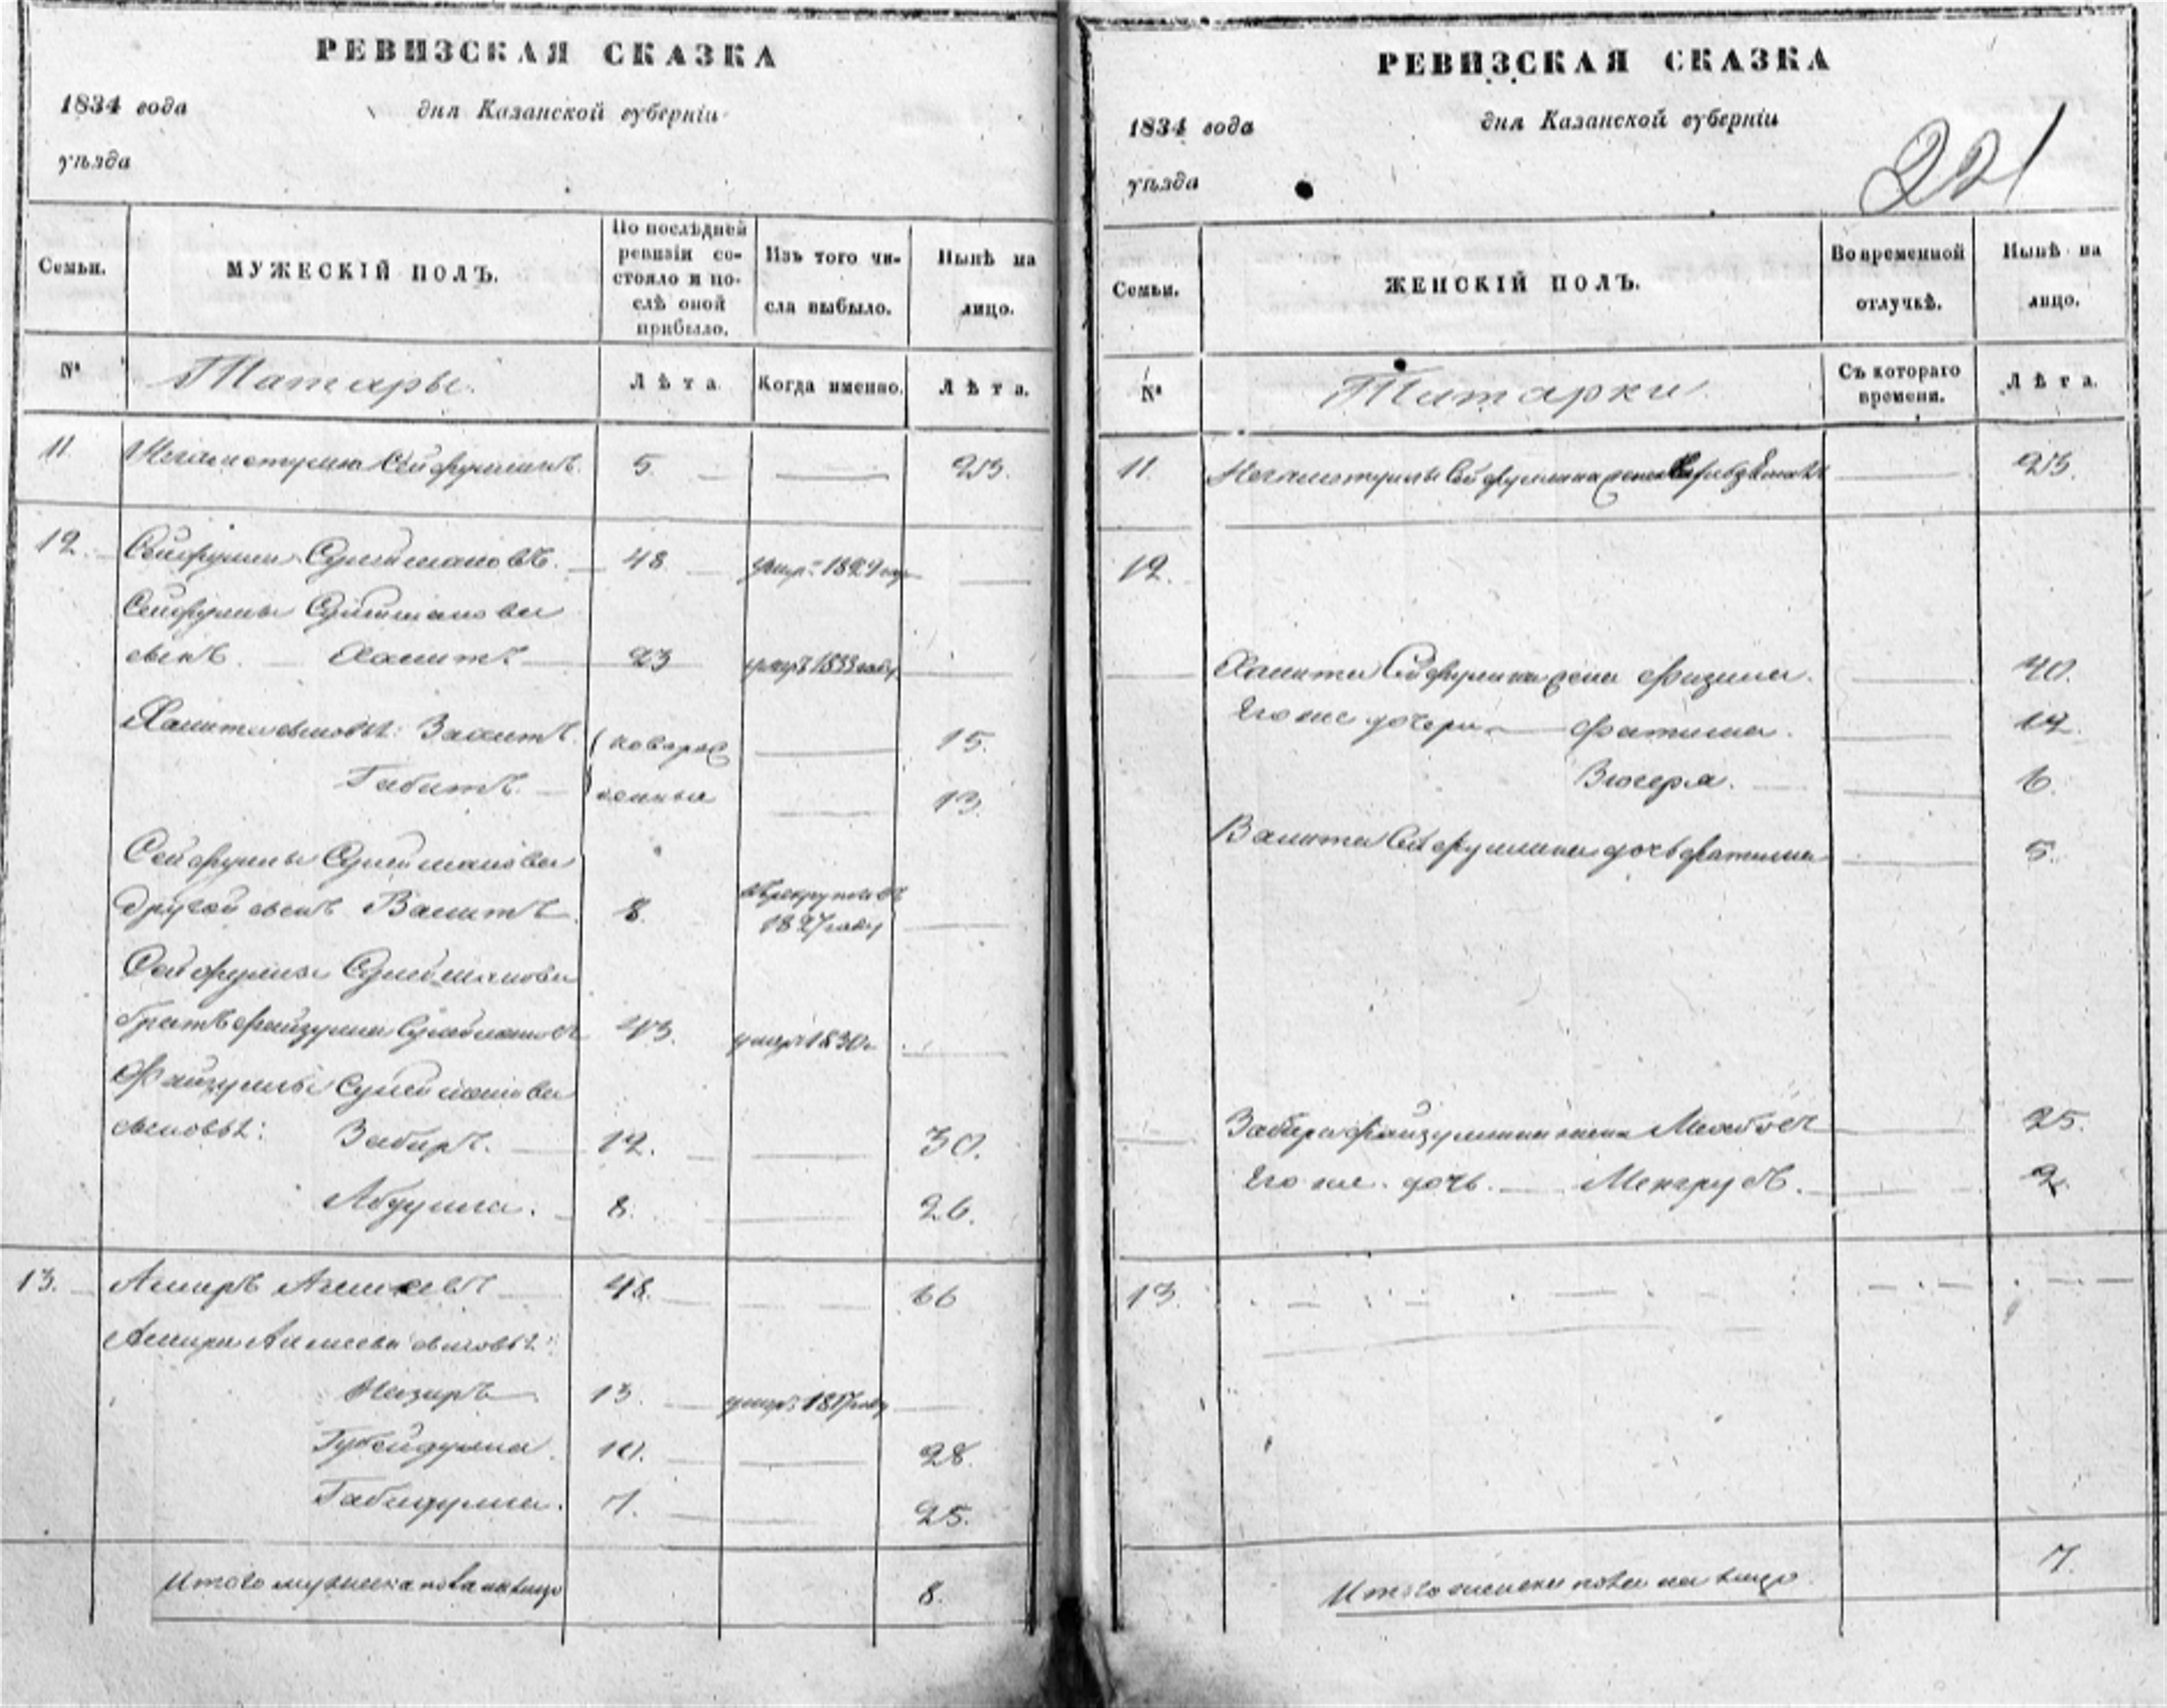 РЕВИЗСКАЯ СКАЗКА
1834 года дня Казанской губерніи
уѣзда
Семьи.
МУЖЕСКІЙ ПОЛЪ.
По послѣдней ревизіи со-
стояло и по-
слѣ оной
прибыло.
Изъ того чи-
сла выбыло.
Нынѣ на
лицо.
№ Татары. Лѣта Когда именно. Лѣта.
11 Сейфуллинъ. 5. 23.
12. Сейфулла Сулеймановъ. 48
Сейфуллы Сулейманова
сынъ Хамитъ 23 умеръ 1833 году
Хамита сыновья: Захитъ. новорож 15.
Габитъ. денныя 13.
Сейфуллы Сулейманова
другой сынъ Валитъ. 8. въ рекруты въ
1827 году
Сейфуллы Сулейманова
братъ Файзулла Сулеймановъ 43. умеръ 1830
Файзуллы Сулейманова
сыновья: Забиръ. 12. 30.
Абдулла. 8. 26.
13. Амиръ 48. 66
Амира сыновья:
Назиръ 13. умеръ 1817 году
Губейдулла. 10. 28.
Габидулла. 7. 25.
Итого мужеска пола на лицо 8.
РЕВИЗСКАЯ СКАЗКА
1834 года дня Казанской губерніи
уѣзда
221
Семьи.
ЖЕНСКІЙ ПОЛЪ.
Во временной
отлучкѣ.
Нынѣ на
лицо.
№ Татарки. Съ котораго
времени.
Лѣта.
11. Сейфуллина жена 23.
12.
Хамита Сейфуллина жена Фазила. 40.
Его же дочери Фатима. 12.
Зюгера. 6.
Валита Сейфуллина дочь Фатима 5.
Забира Файзуллина жена 25.
Его же дочь. 2.
13.
Итого женска пола на лицо 7.